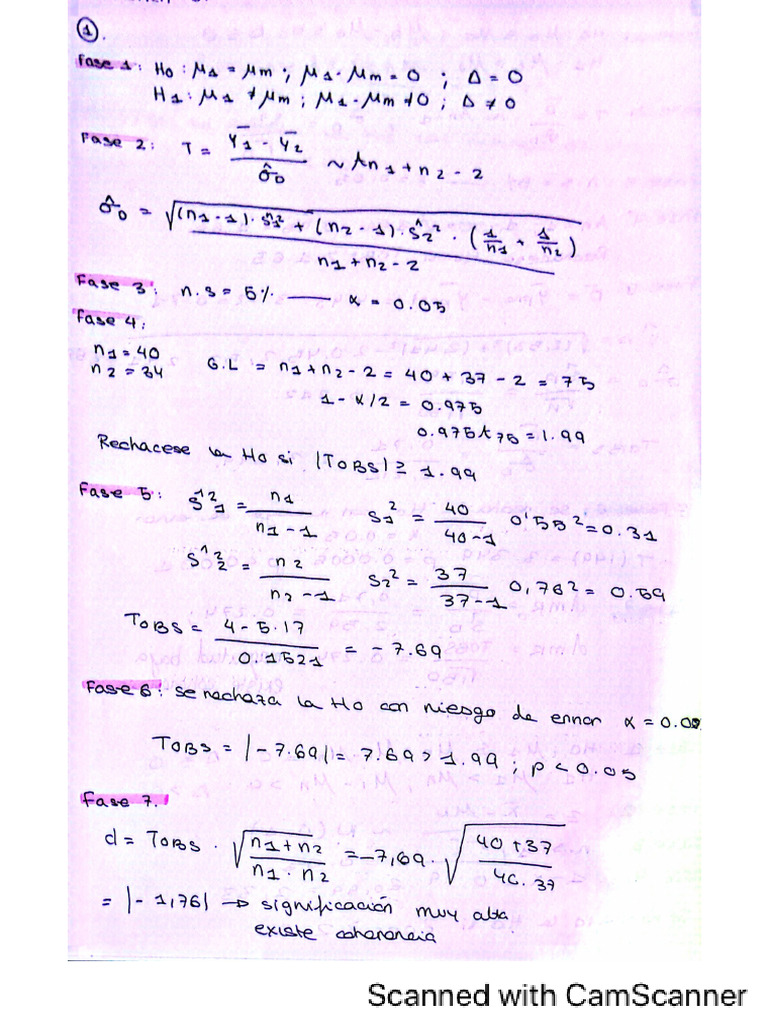 ①.
Fase 1: Ho: μ1 = μm ; μ1 - μm = 0 ; Δ = 0
H1: μ1 ≠ μm ; μ1 - μm ≠ 0 ; Δ ≠ 0
Fase 2: T = (Ȳ1 - Ȳ2) / σ̂D ~ tn1 + n2 - 2
σ̂D = √((n1 - 1) · ŝ1² + (n2 - 1) · ŝ2² / n1 + n2 - 2 · (1/n1 + 1/n2))
Fase 3: n.s = 5% —— α = 0.05
Fase 4:
n1 = 40
n2 = 34
G.L = n1 + n2 - 2 = 40 + 37 - 2 = 75
1 - α/2 = 0.975
0.975 t 75 = 1.99
Rechacese la Ho si |TOBS| ≥ 1.99
Fase 5: ŝ²1 = n1 / n1 - 1   S1² = 40 / 40-1 0'55² = 0.31
ŝ²2 = n2 / n2 - 1   S2² = 37 / 37-1 0,76² = 0.59
TOBS = 4 - 5.17 / 0.1521 = - 7.69
Fase 6: se rechaza la Ho con riesgo de error α = 0.05
TOBS = |-7.69| = 7.69 > 1.99 ; p < 0.05
Fase 7.
d = TOBS · √(n1 + n2 / n1 · n2) = -7,69 · √(40 + 37 / 40 · 37)
= |- 1,76| → significación muy alta
existe coherencia
Scanned with CamScanner